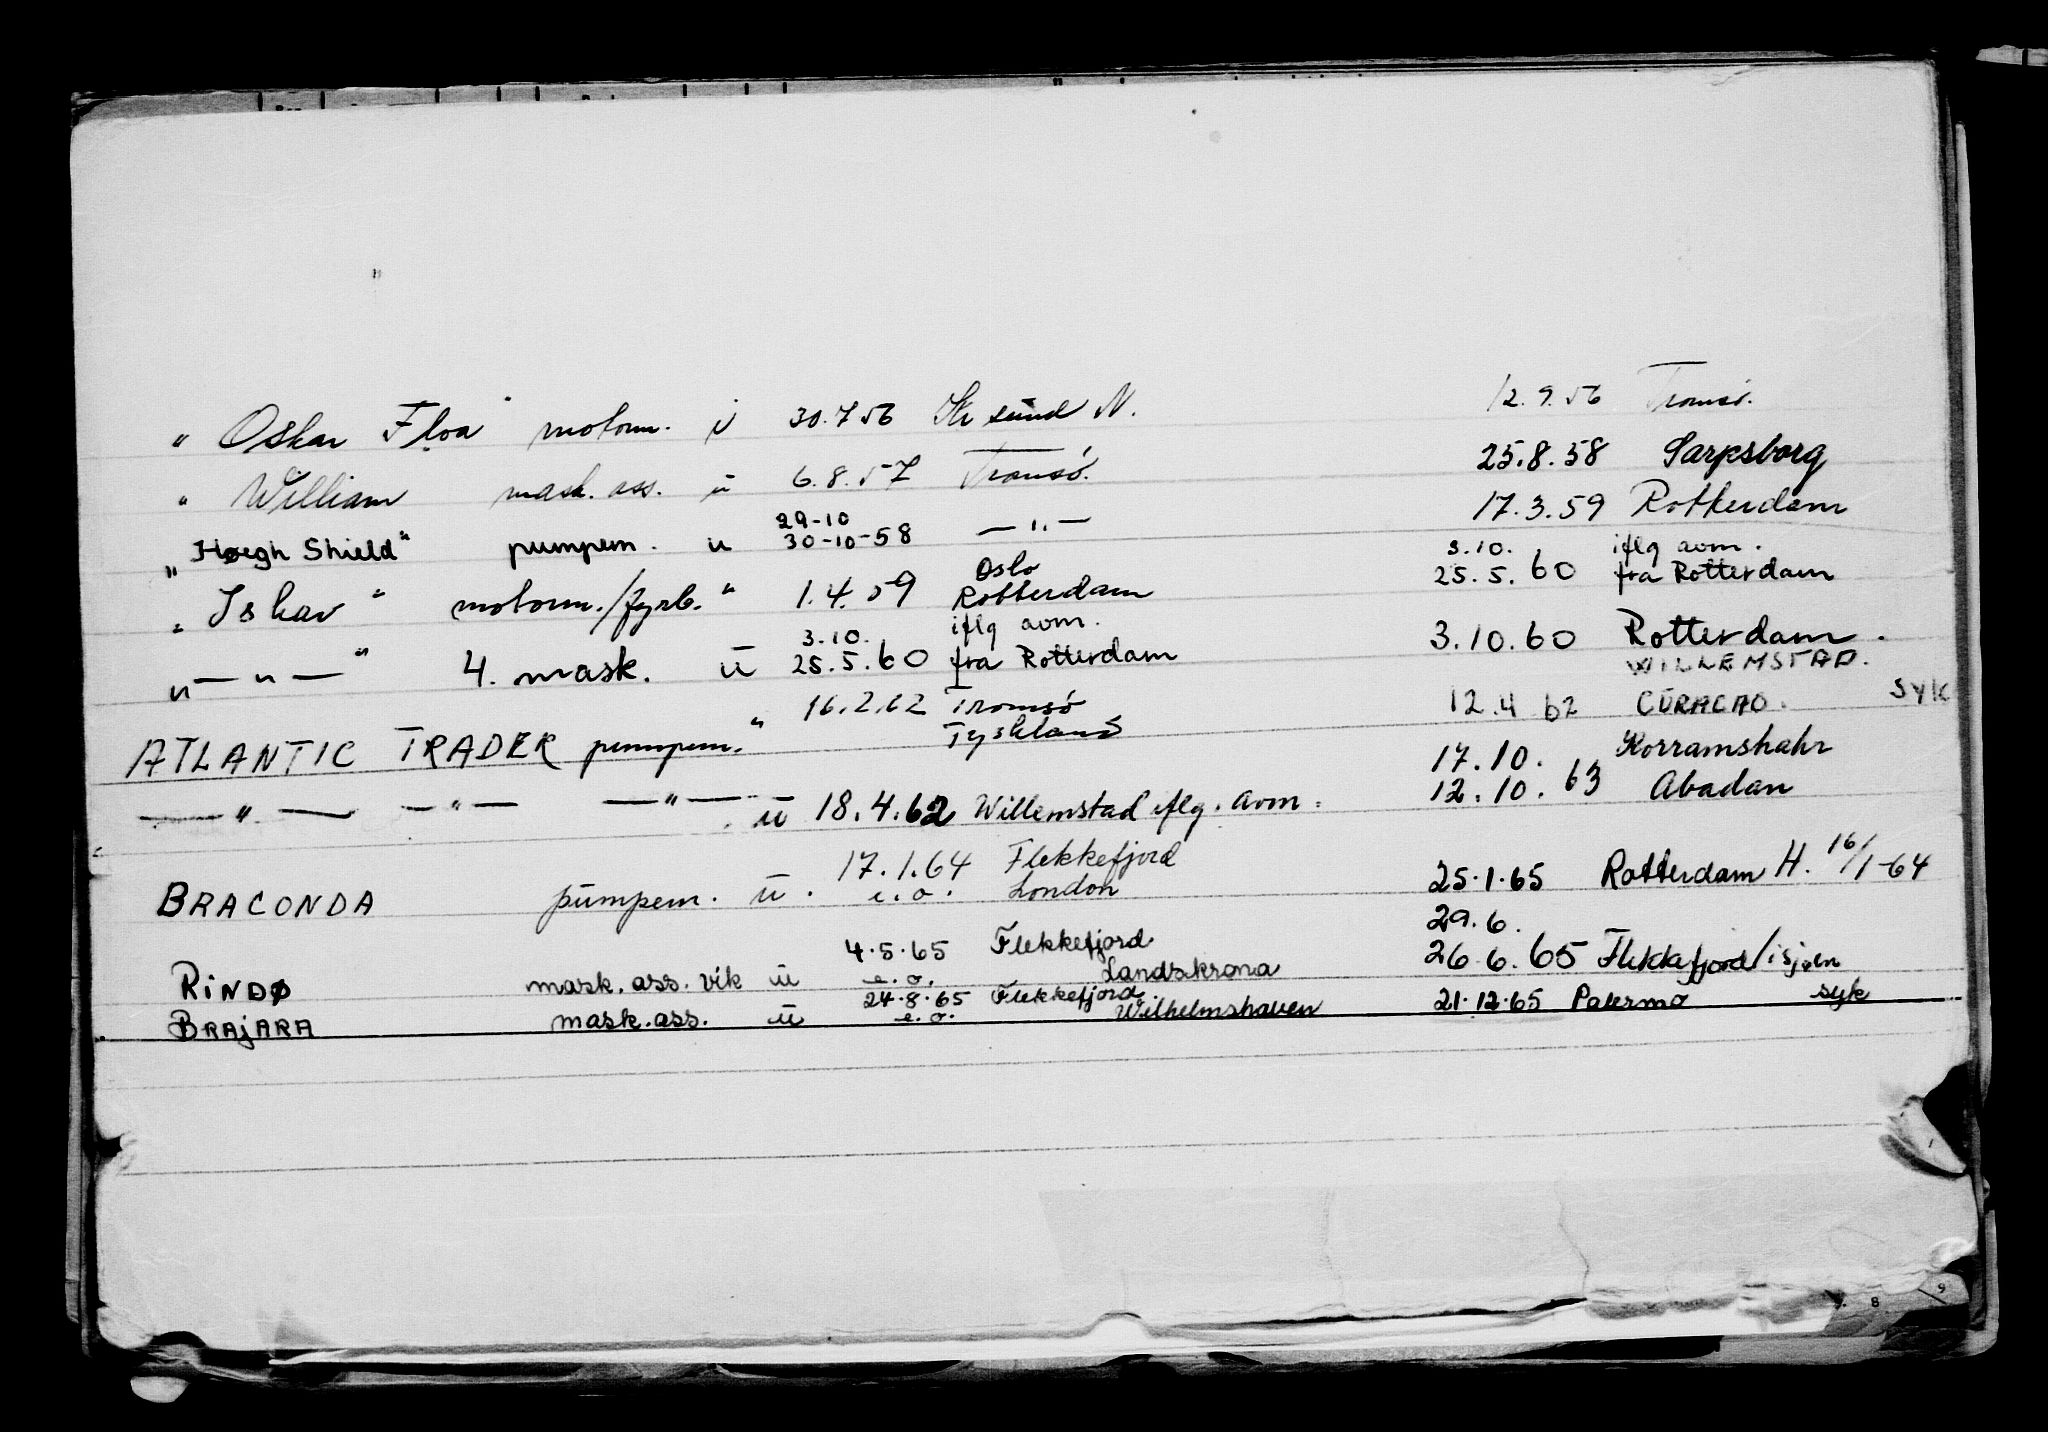 „ Oskar Floa" motorm. i 30.7.56 Kr sund N. 12.9.56 Tromsö.
„ William mask. ass. ü 6.8.57 Tromsö. 25.8.58 Sarpsborg
29-10
„Høegh Shield" pumpem. u 30-10-58 —"— 17.3.59 Rotterdam
Oslo 3.10. iflg avm.
„ Ishav " motorm./fyrb. " 1.4.59 Rotterdam 25.5.60 fra Rotterdam
3.10. iflg avm.
„—"—" 4. mask. ü 25.5.60 fra Rotterdam 3.10.60 Rotterdam.
16.2.62 Tromsø WILLEMSTAD.
ATLANTIC TRADER pumpem. " Tyskland 12.4 62 CURACAO. SYK
17.10. Korramshahr
—"— —"— —"— ü 18.4.62 Willemstad iflg. avm. 12.10.63 Abadan
17.1.64 Flekkefjord
BRACONDA pumpem. ü. e.o. London 25.1.65 Rotterdam H. 16/1-64
4.5.65 Flekkefjord 29.6.
RINDØ mask. ass. vik ü e.o. Landskrona 26.6.65 Flekkefjord/isjøen
24.8.65 Flekkefjord
BRAJARA mask. ass. ü e.o. Wilhelmshaven 21.12.65 Palermo syk